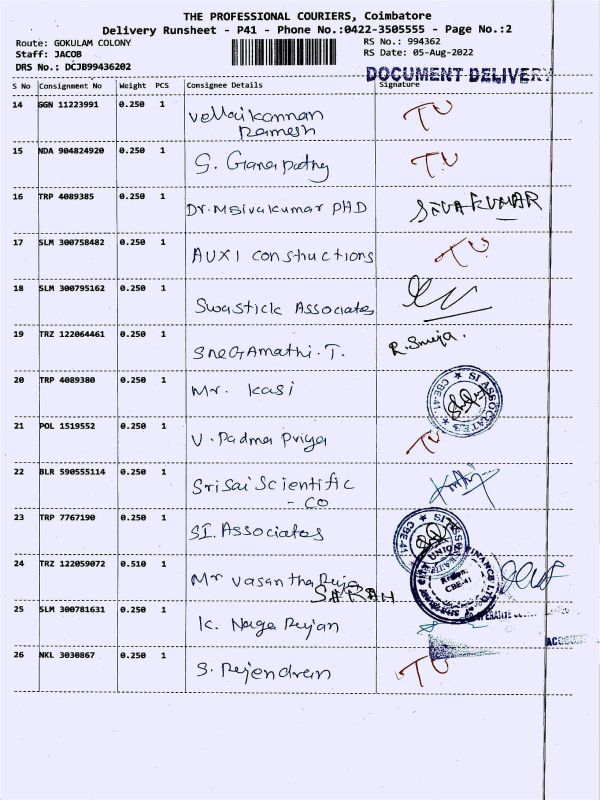 THE PROFESSIONAL COURIERS, Coimbatore
Delivery Runsheet - P41 - Phone No.:0422-3505555 - Page No.:2
Route: GOKULAM COLONY
Staff: JACOB
DRS No.: DCJB99436202
RS No.: 994362
RS Date: 05-Aug-2022
DOCUMENT DELIVERY
S No Consignment No Weight PCS Consignee Details Signature
14 GGN 11223991 0.250 1 Vellaikannan TU
Ramesh
15 NDA 904824920 0.250 1 G. Ganapathy TU
16 TRP 4089385 0.250 1 Dr. M Sivakumar PHD SIVAKUMAR
17 SLM 300758482 0.250 1 AUXI Constructions TU
18 SLM 300795162 0.250 1 Swastick Associates
19 TRZ 122064461 0.250 1 SneGAmathi. T. R. Sneja.
20 TRP 4089380 0.250 1 Mr. Kasi SI ASSOCIATES CBE-41
21 POL 1519552 0.250 1 V. Padma Priya TU
22 BLR 590555114 0.250 1 Sri Sai Scientific
- CO
23 TRP 7767190 0.250 1 SI. Associates SI ASSOCIATES CBE-41
24 TRZ 122059072 0.510 1 Mr Vasantha Raja UNION FINANCE LTD CBE-41
SARAN
25 SLM 300781631 0.250 1 K. Naga Rajan
26 NKL 3030867 0.250 1 S. Rajendran TU